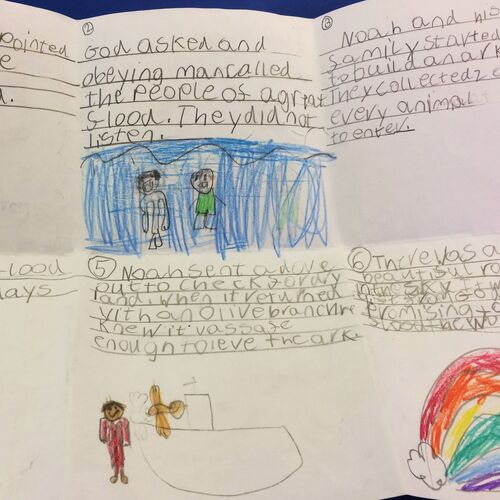 pointed
e
d.
②
God asked and
obeying man called
the people of a great
flood. They did not
listen.
③
Noah and his
family started
to build an ark
They collected 2 o
every animal
to enter.
flood
days
⑤ Noah sent a dove
out to check for dry
land, when it returned
with an olive branch he
knew it was safe
enough to leve the ark.
⑥ There was a
beautiful ra
in the sky. It w
God
promising to
flood the wo